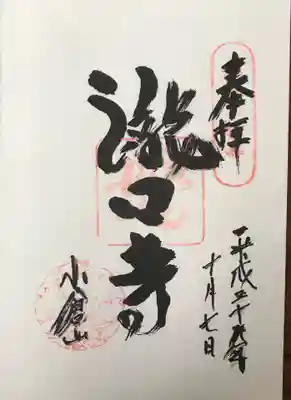 奉拝
瀧口寺
小倉山
平成二十九年
十月七日